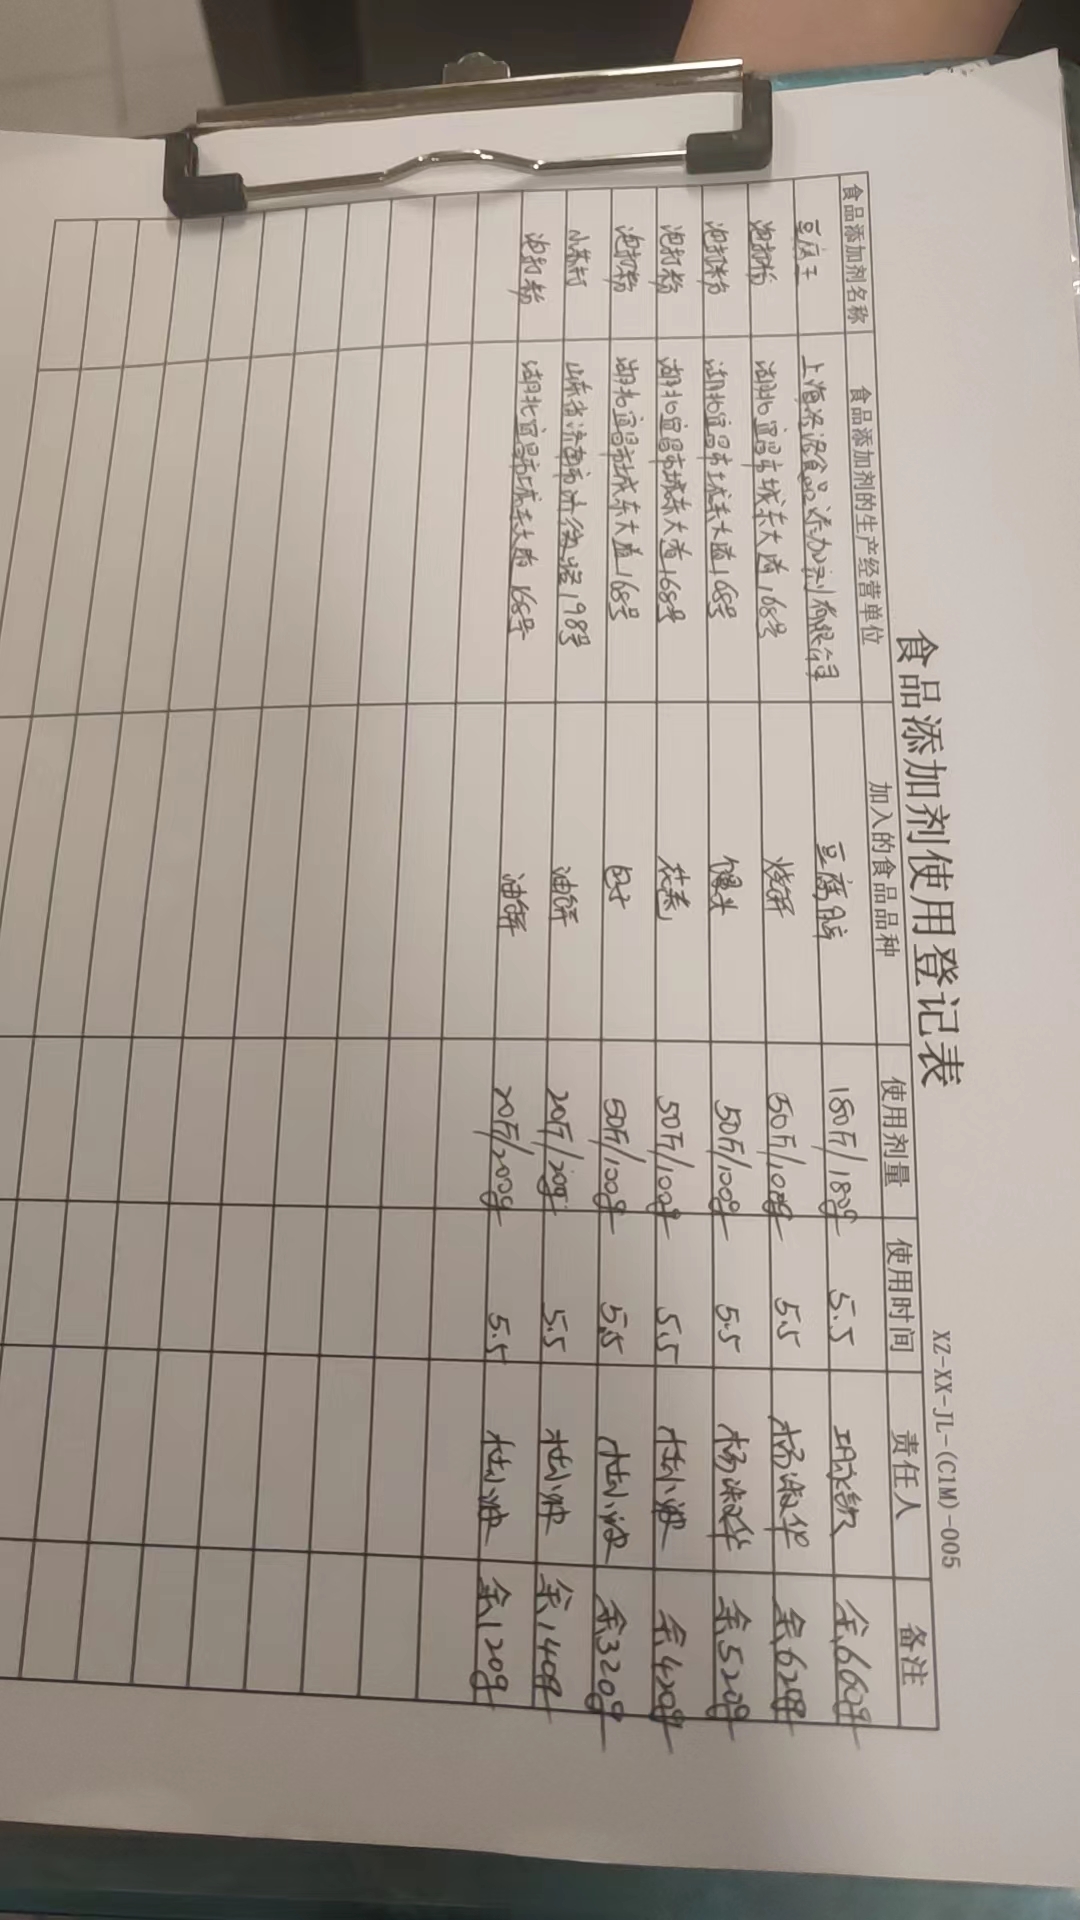 食品添加剂使用登记表
XZ-XX-JL-(C1M)-005
食品添加剂名称 食品添加剂的生产经营单位 加入的食品品种 使用剂量 使用时间 责任人 备注
豆腐王 上海 食品添加剂有限公司 豆腐脑 180斤/180g 5.5 余660g
泡打粉 湖北宜昌市城东大道168号 烧饼 50斤/100g 5.5 杨淑华 余620g
泡打粉 湖北宜昌市城东大道168号 馒头 50斤/100g 5.5 杨淑华 余520g
泡打粉 湖北宜昌市城东大道168号 花卷 50斤/100g 5.5 杜小波 余420g
泡打粉 湖北宜昌市城东大道168号 包子 50斤/100g 5.5 杜小波 余320g
小苏打 山东省济南市 198号 油饼 20斤/20g 5.5 杜小波 余140g
泡打粉 湖北宜昌市城东大道168号 油饼 20斤/200g 5.5 杜小波 余120g